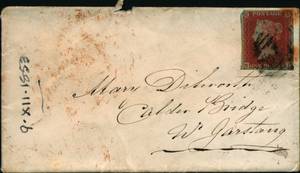 POSTAGE
Mary Dilworth
Calder Bridge
Nr Garstang
9-XII-1553